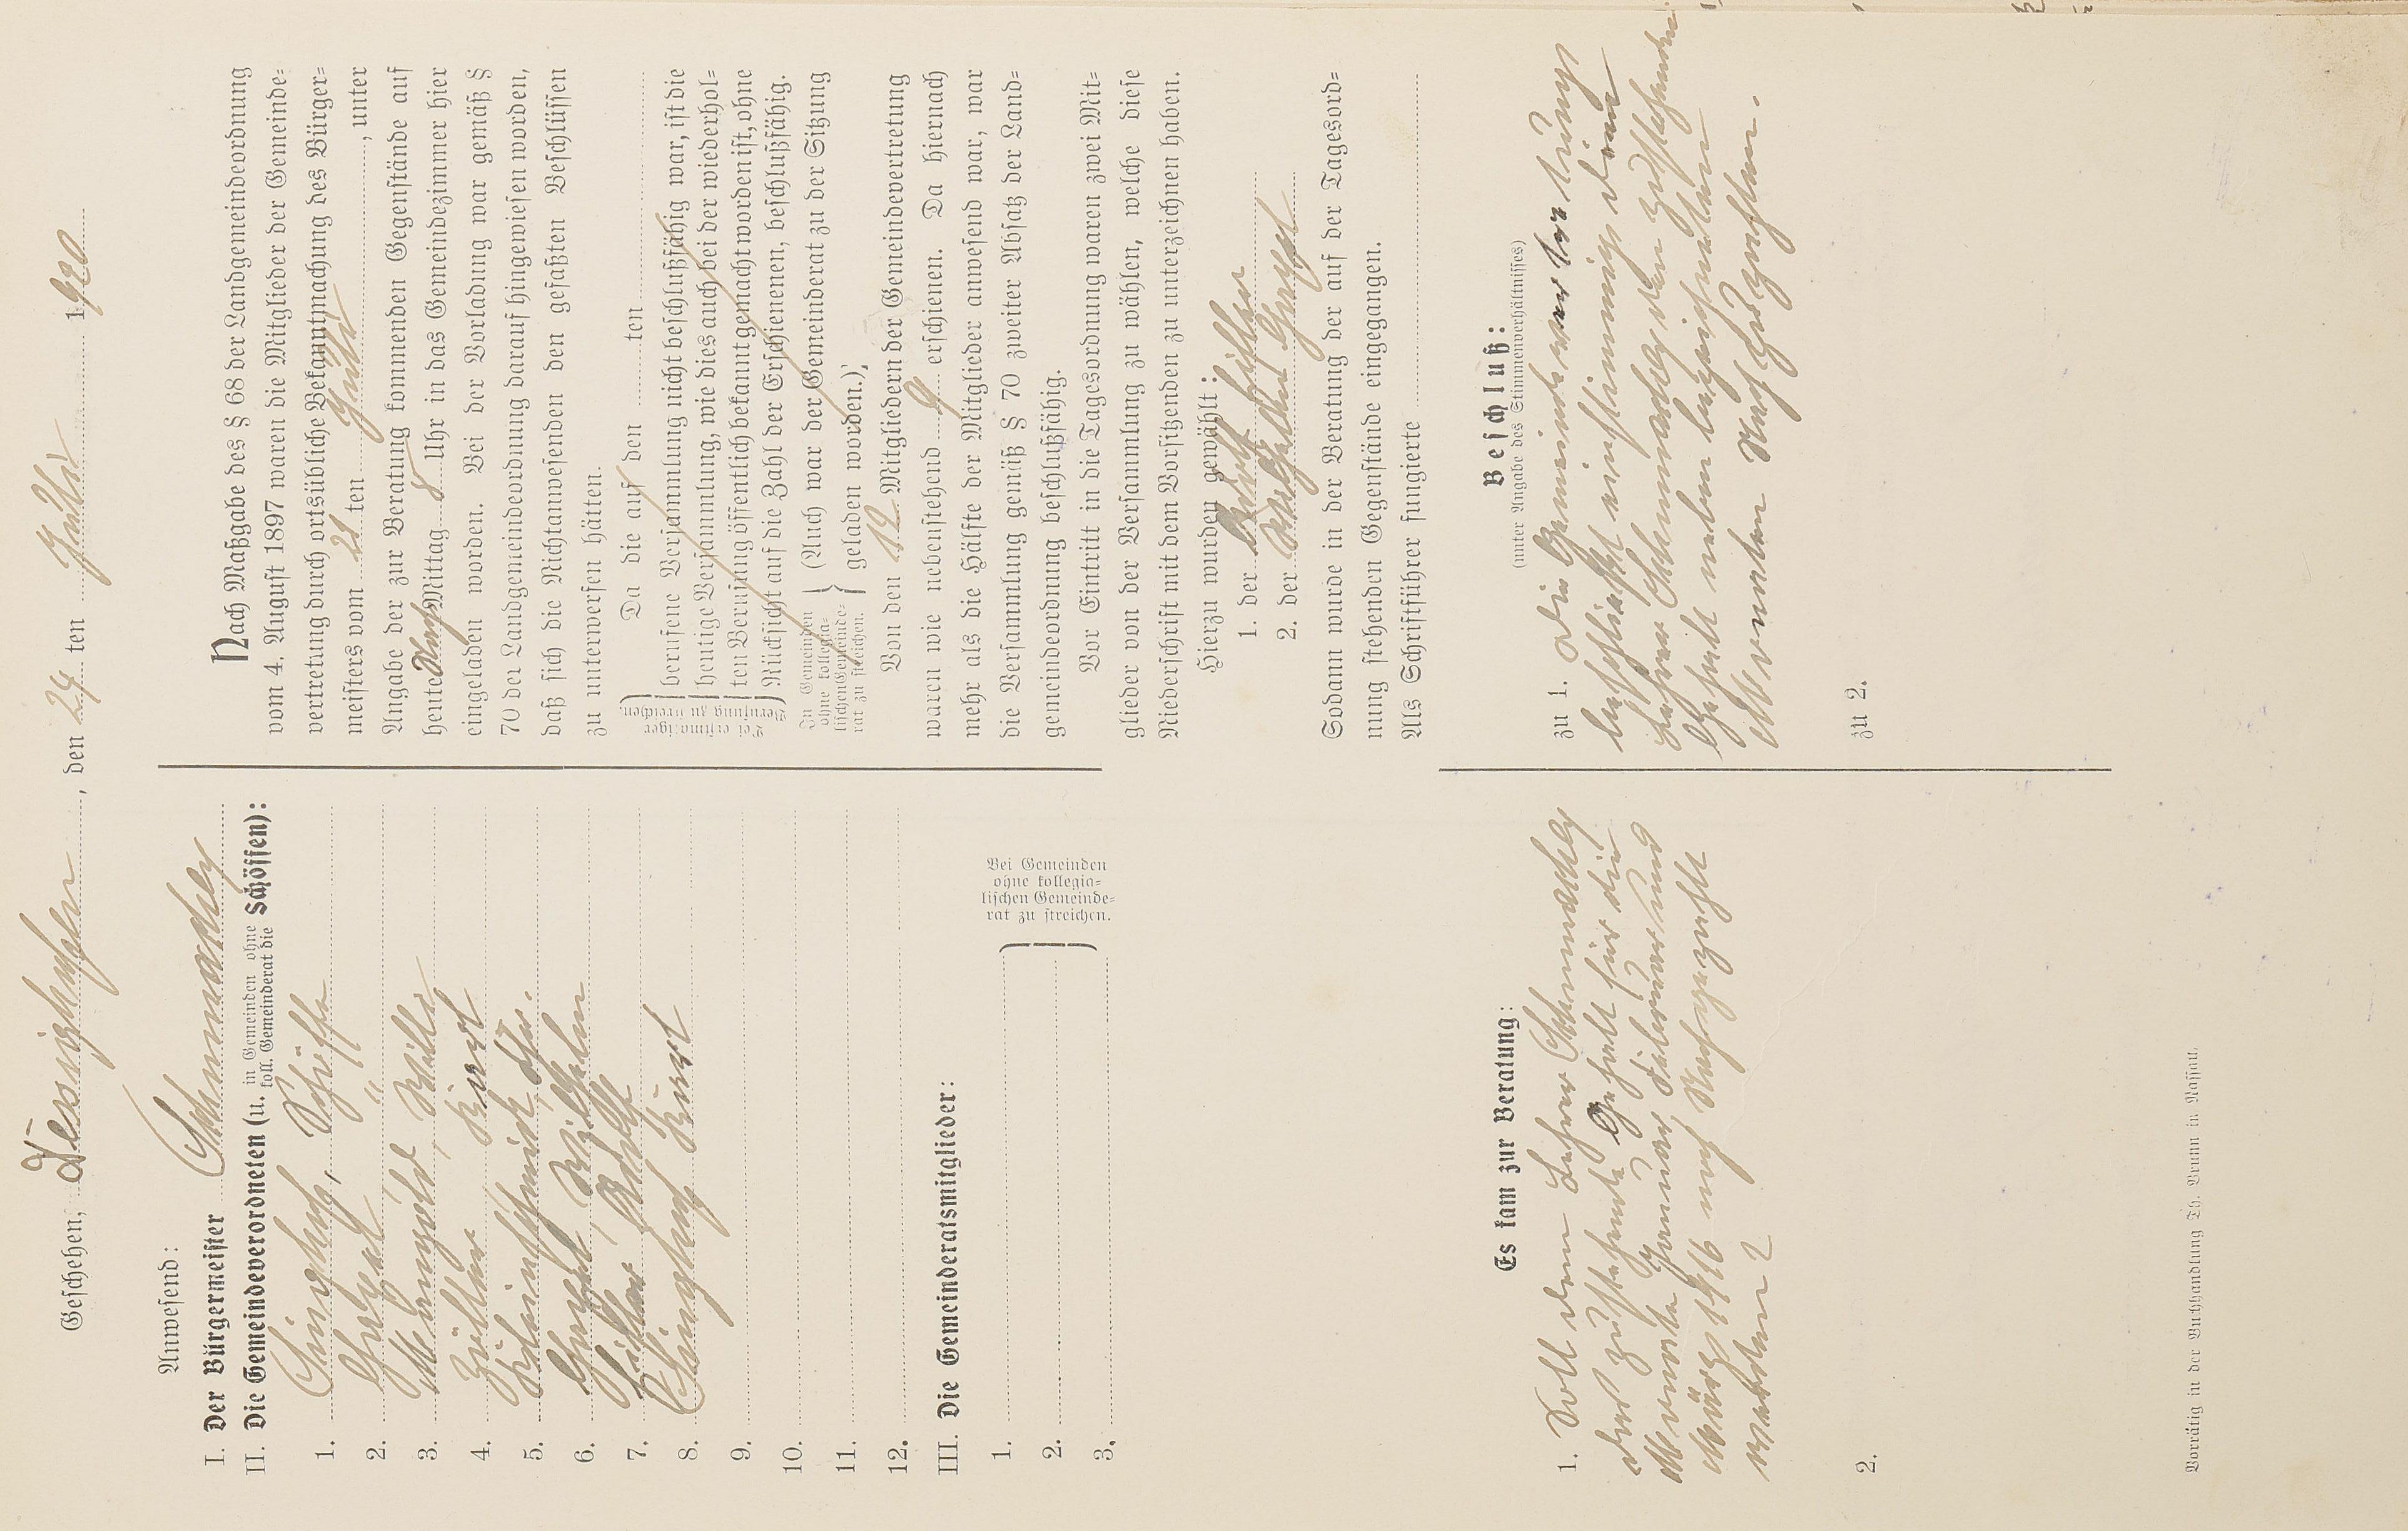 Geschehen, Dessighofen, den 24 ten Juli 1920
Anwesend:
I. Der Bürgermeister Schumacher
II. Die Gemeindeverordneten (u. in Gemeinden ohne koll. Gemeinderat die Schöffen):
1. Schöffe
2. "
3. Wilh.
4. Karl
5.
6. Wilhelm
7. Adolf
8. Karl
9.
10.
11.
12.
III. Die Gemeinderatsmitglieder:
1.
2.
3.
Bei Gemeinden
ohne kollegia-
lischen Gemeinde-
rat zu streichen.
Nach Maßgabe des § 68 der Landgemeindeordnung
vom 4. August 1897 waren die Mitglieder der Gemeinde-
vertretung durch ortsübliche Bekanntmachung des Bürger-
meisters vom 21 ten Juli, unter
Angabe der zur Beratung kommenden Gegenstände auf
heute Nachmittag 8 Uhr in das Gemeindezimmer hier
eingeladen worden. Bei der Vorladung war gemäß §
70 der Landgemeindeordnung darauf hingewiesen worden,
daß sich die Nichtanwesenden den gefaßten Beschlüssen
zu unterwerfen hätten.
Bei erstmaliger
Berufung zu streichen.
Da die auf den ten
berufene Versammlung nicht beschlußfähig war, ist die
heutige Versammlung, wie dies auch bei der wiederhol-
ten Berufung öffentlich bekannt gemacht worden ist, ohne
Rücksicht auf die Zahl der Erschienenen, beschlußfähig.
In Gemeinden
ohne kollegia-
lischen Gemeinde-
rat zu streichen.
(Auch war der Gemeinderat zu der Sitzung
geladen worden.)
Von den 12 Mitgliedern der Gemeindevertretung
waren wie nebenstehend 9 erschienen. Da hiernach
mehr als die Hälfte der Mitglieder anwesend war, war
die Versammlung gemäß § 70 zweiter Absatz der Land-
gemeindeordnung beschlußfähig.
Vor Eintritt in die Tagesordnung waren zwei Mit-
glieder von der Versammlung zu wählen, welche diese
Niederschrift mit dem Vorsitzenden zu unterzeichnen haben.
Hierzu wurden gewählt:
1. der Adolf
2. der Wilhelm
Sodann wurde in der Beratung der auf der Tagesord-
nung stehenden Gegenstände eingegangen.
Als Schriftführer fungierte
Es kam zur Beratung:
1. Soll dem Lehrer Schumacher
das zustehende Gehalt für die
Monate Januar Februar und
März 1916 noch Nachgezahlt
werden?
2.
Beschluß:
(unter Angabe des Stimmenverhältnisses)
zu 1. Die Gemeindevertretung
beschließt einstimmig dem
Lehrer Schumacher den zustehenden
Gehalt neben bezeichneten
Monaten Nachzuzahlen.
zu 2.
Vorrätig in der Buchhandlung Th. Brunn in Nassau.